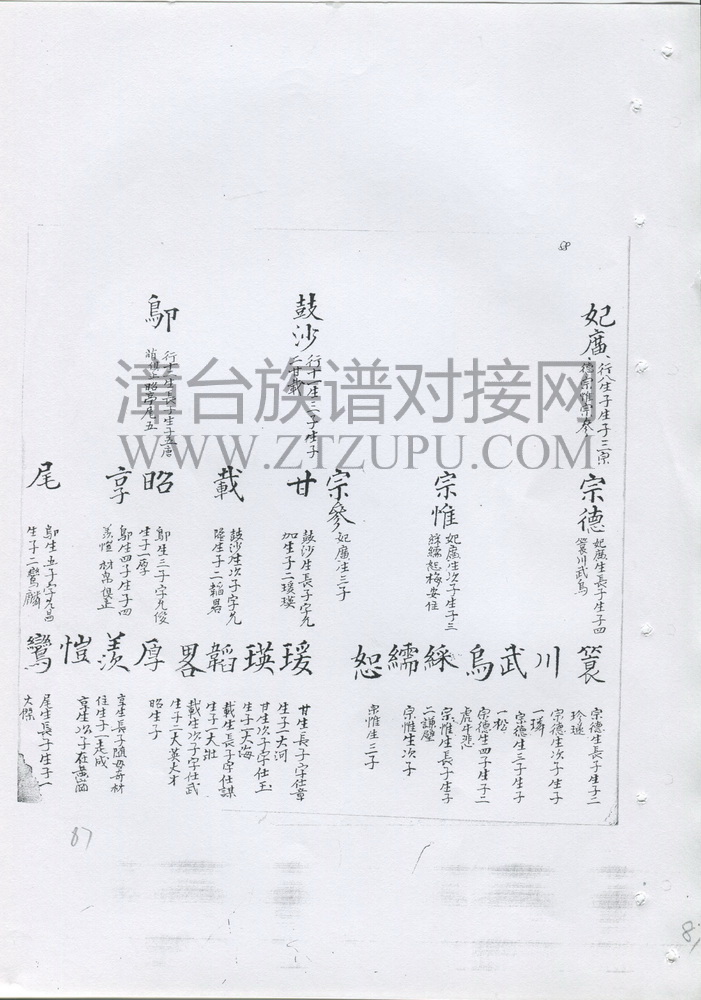 妃廣
行八生子生子三宗
德宗惟宗參
鼓沙
行十一生三子生子
二甘載
鄔
行十二生長子生子五唐
昭享尾五
宗德
妃廣生長子生子四
簑川武烏
宗惟
妃廣生次子生子三
綵繻恕梅安住
宗參
妃廣生三子
甘
鼓沙生長子字允
加生子二瑗瑛
載
鼓沙生次子字允
陞生子二韜畧
昭
鄔生三子字允俊
生子一厚
享
鄔生四子生子四
羡愷材俱止
尾
鄔生五子字允昌
生子二鸞麟
簑
宗德生長子生子二
珍遜
川
宗德生次子生子
一璘
武
宗德生三子生子
一松
烏
宗德生四子生子二
虎牛悲
綵
宗惟生長子生子
二謙璧
繻
宗惟生次子
恕
宗惟生三子
瑗
甘生長子字仕章
生子一大河
瑛
甘生次子字仕玉
生子一大海
韜
載生長子字仕謀
生子一大壯
畧
載生次子字仕武
生子二大英大才
厚
昭生子
羡
享生長子隨母奇材
住生子一志成
愷
享生次子在黄
鸞
尾生長子生子一
大傑
漳台族谱对接网
WWW.ZTZUPU.COM
87
87